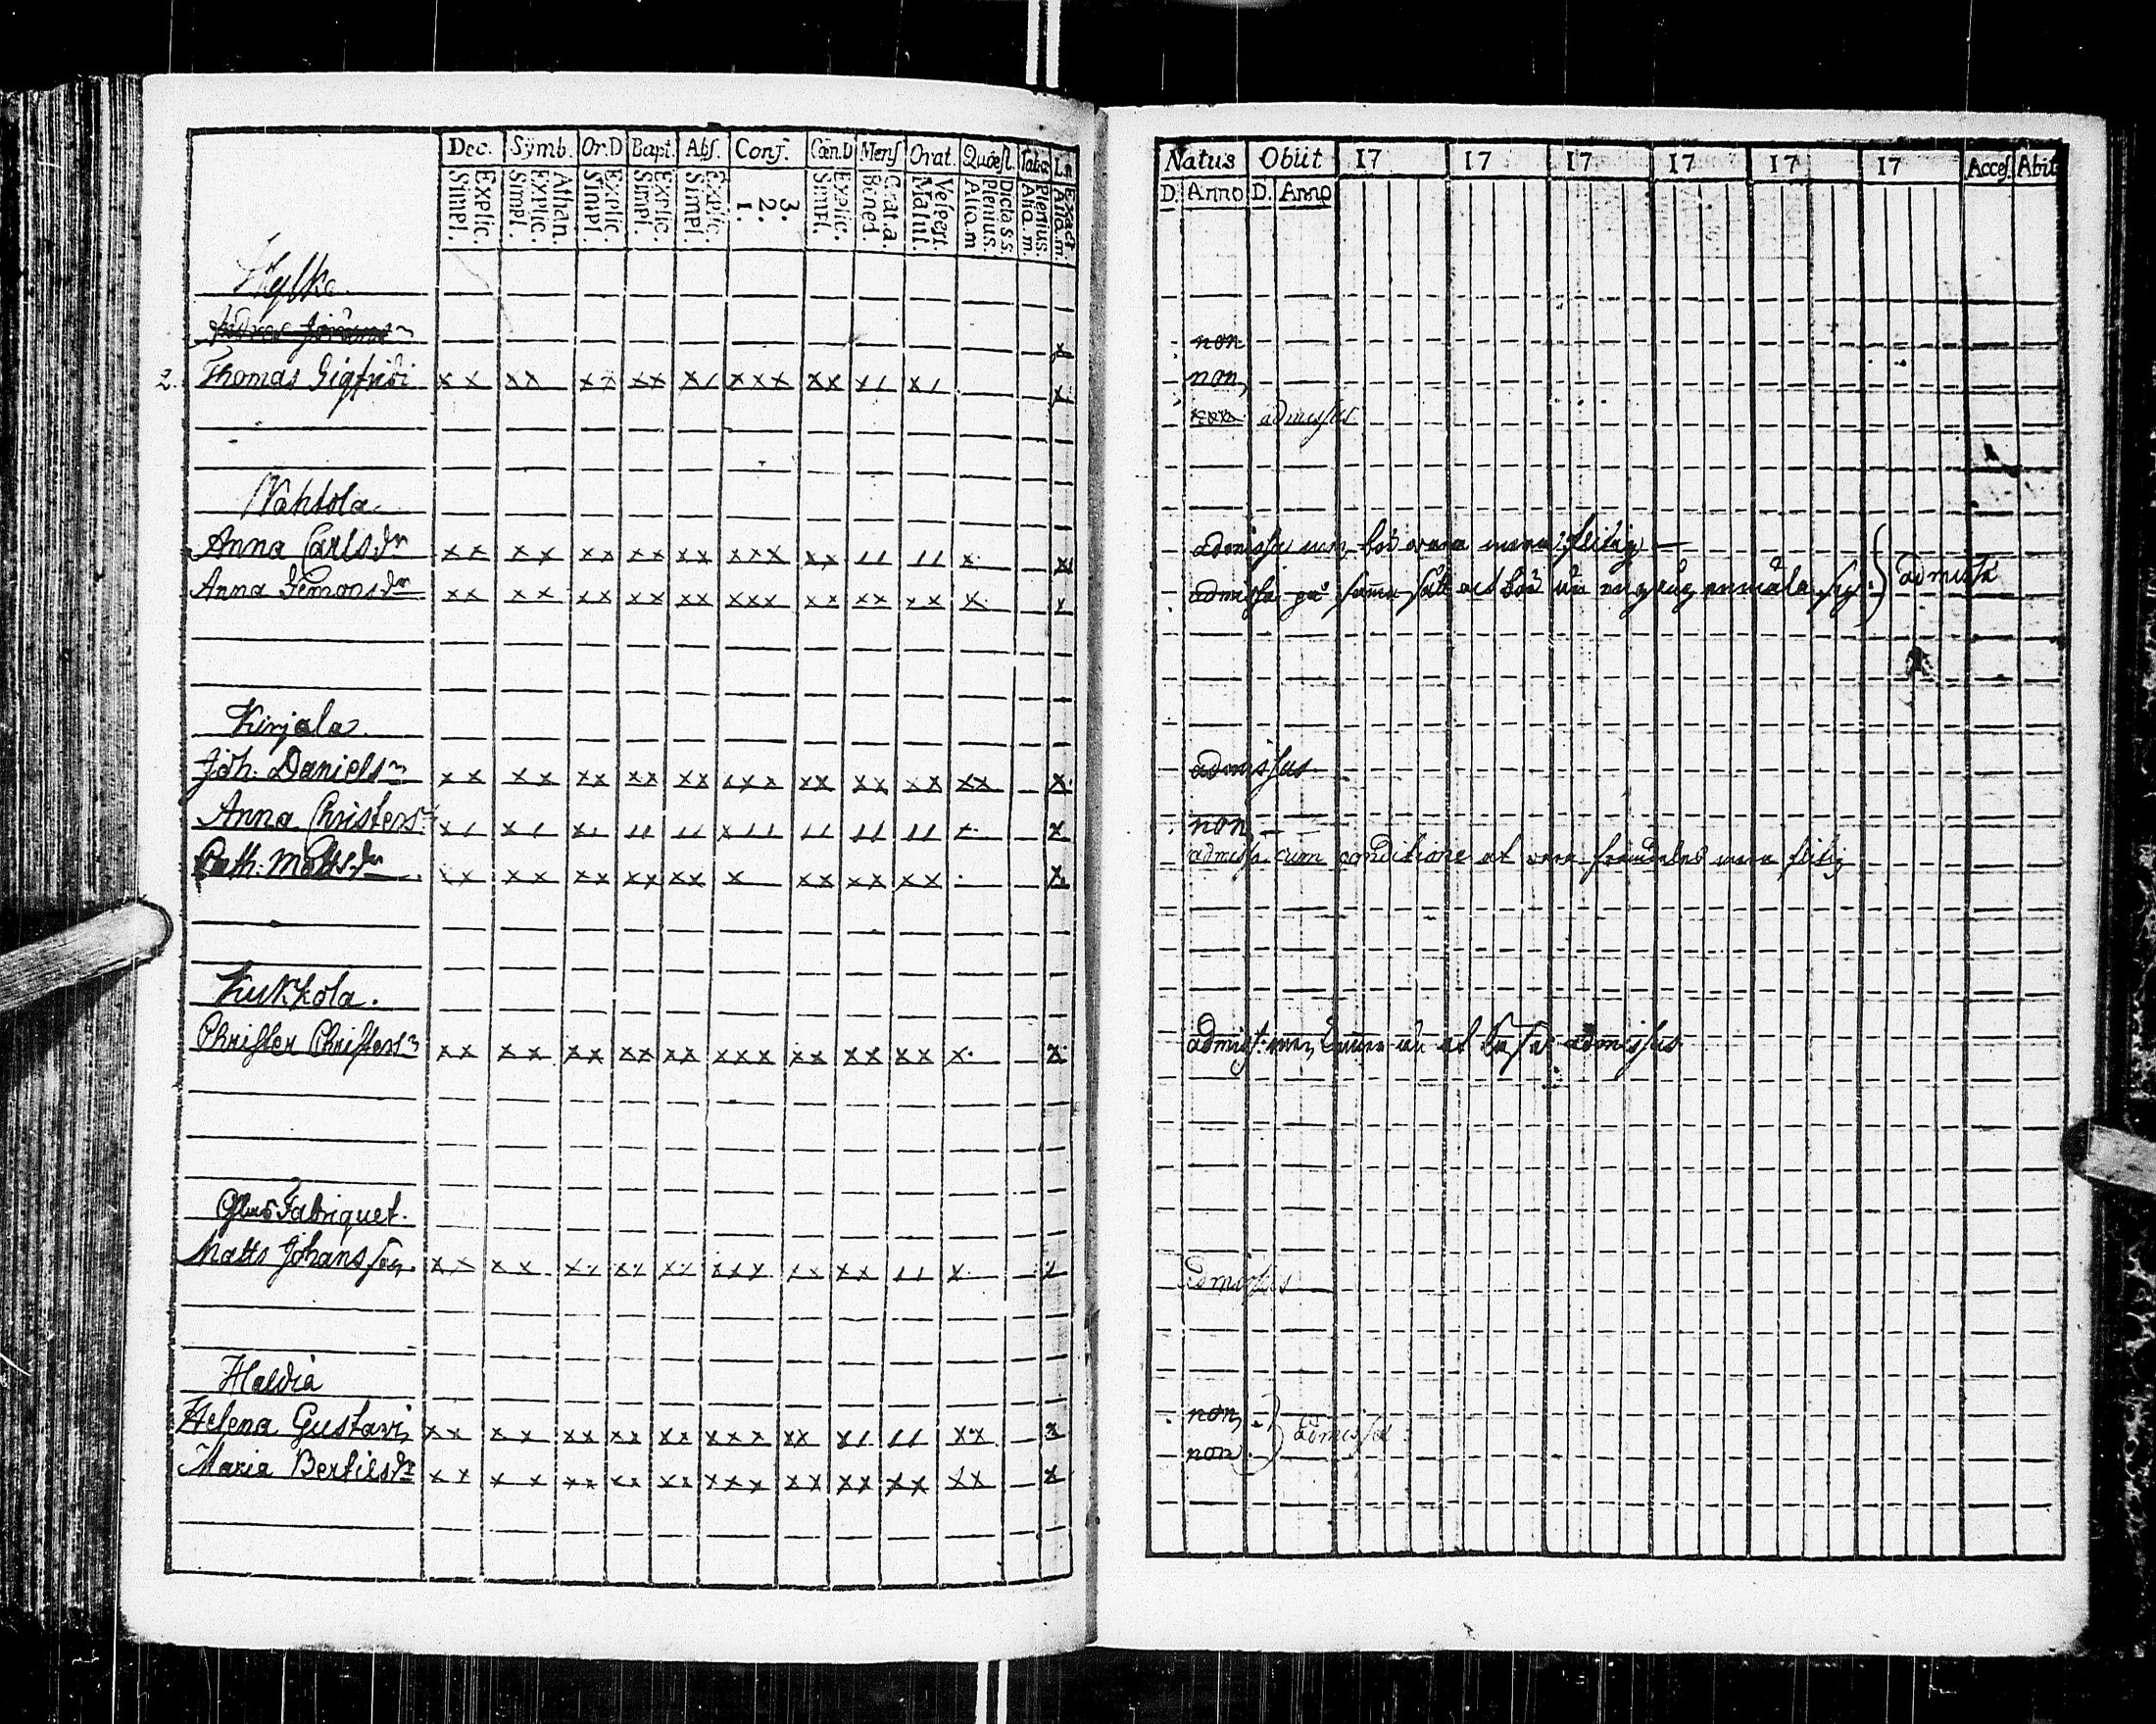 Dec. Sÿmb. Or.D Bapt. Abs. Conf. Cœn.D Mens Orat. Quæst. Tabæ L.n
Explic. Simpl. Athan. Explic. Simpl. Explic. Simpl. Explic. Simpl. Explic. Simpl. 3. 2. 1. Explic. Simpl. Grat.a. Bened. Vespert. Matut. Dicta s.s. Plenius. Aliq.m Plenius. Aliq.m. Exact Aliq.m.
Hylko.
x
2. Thomas Sigfridi xx xx xx xx x/ xxx xx x/ x/ x
Nahtola.
Anna Carlsdr xx xx xx xx xx xxx xx // // x x
Anna Simonsdr xx xx xx xx xx xxx xx xx xx x x
Kirjala.
Joh. Danielsn xx xx xx xx xx xxx xx xx xx xx x
Anna Christersd x/ x/ x/ // // x// // // // x x
Cath. Mattsdr xx xx xx xx xx x xx xx xx x
Kukkola.
Christer Christersn xx xx xx xx xx xxx xx xx xx x x
Glas Fabriquet.
Matts Johansson xx xx xx xx xx xxx xx xx // x x
Haldia
Helena Gustavi xx xx xx xx xx xxx xx x/ // xx x
Maria Bertilsdr xx xx xx xx xx xxx xx xx xx xx x
Natus Obiit 17 17 17 17 17 17 Acces. Abiit
D. Anno D. Anno
non
non
admissus
admissa men bör vara mera flitig
admissa på samma sätt at bör
admissa
admissus
non
admissa cum conditione at vara mera flitig
admiss. men at läsa admissus
admissus
non
non
admissæ